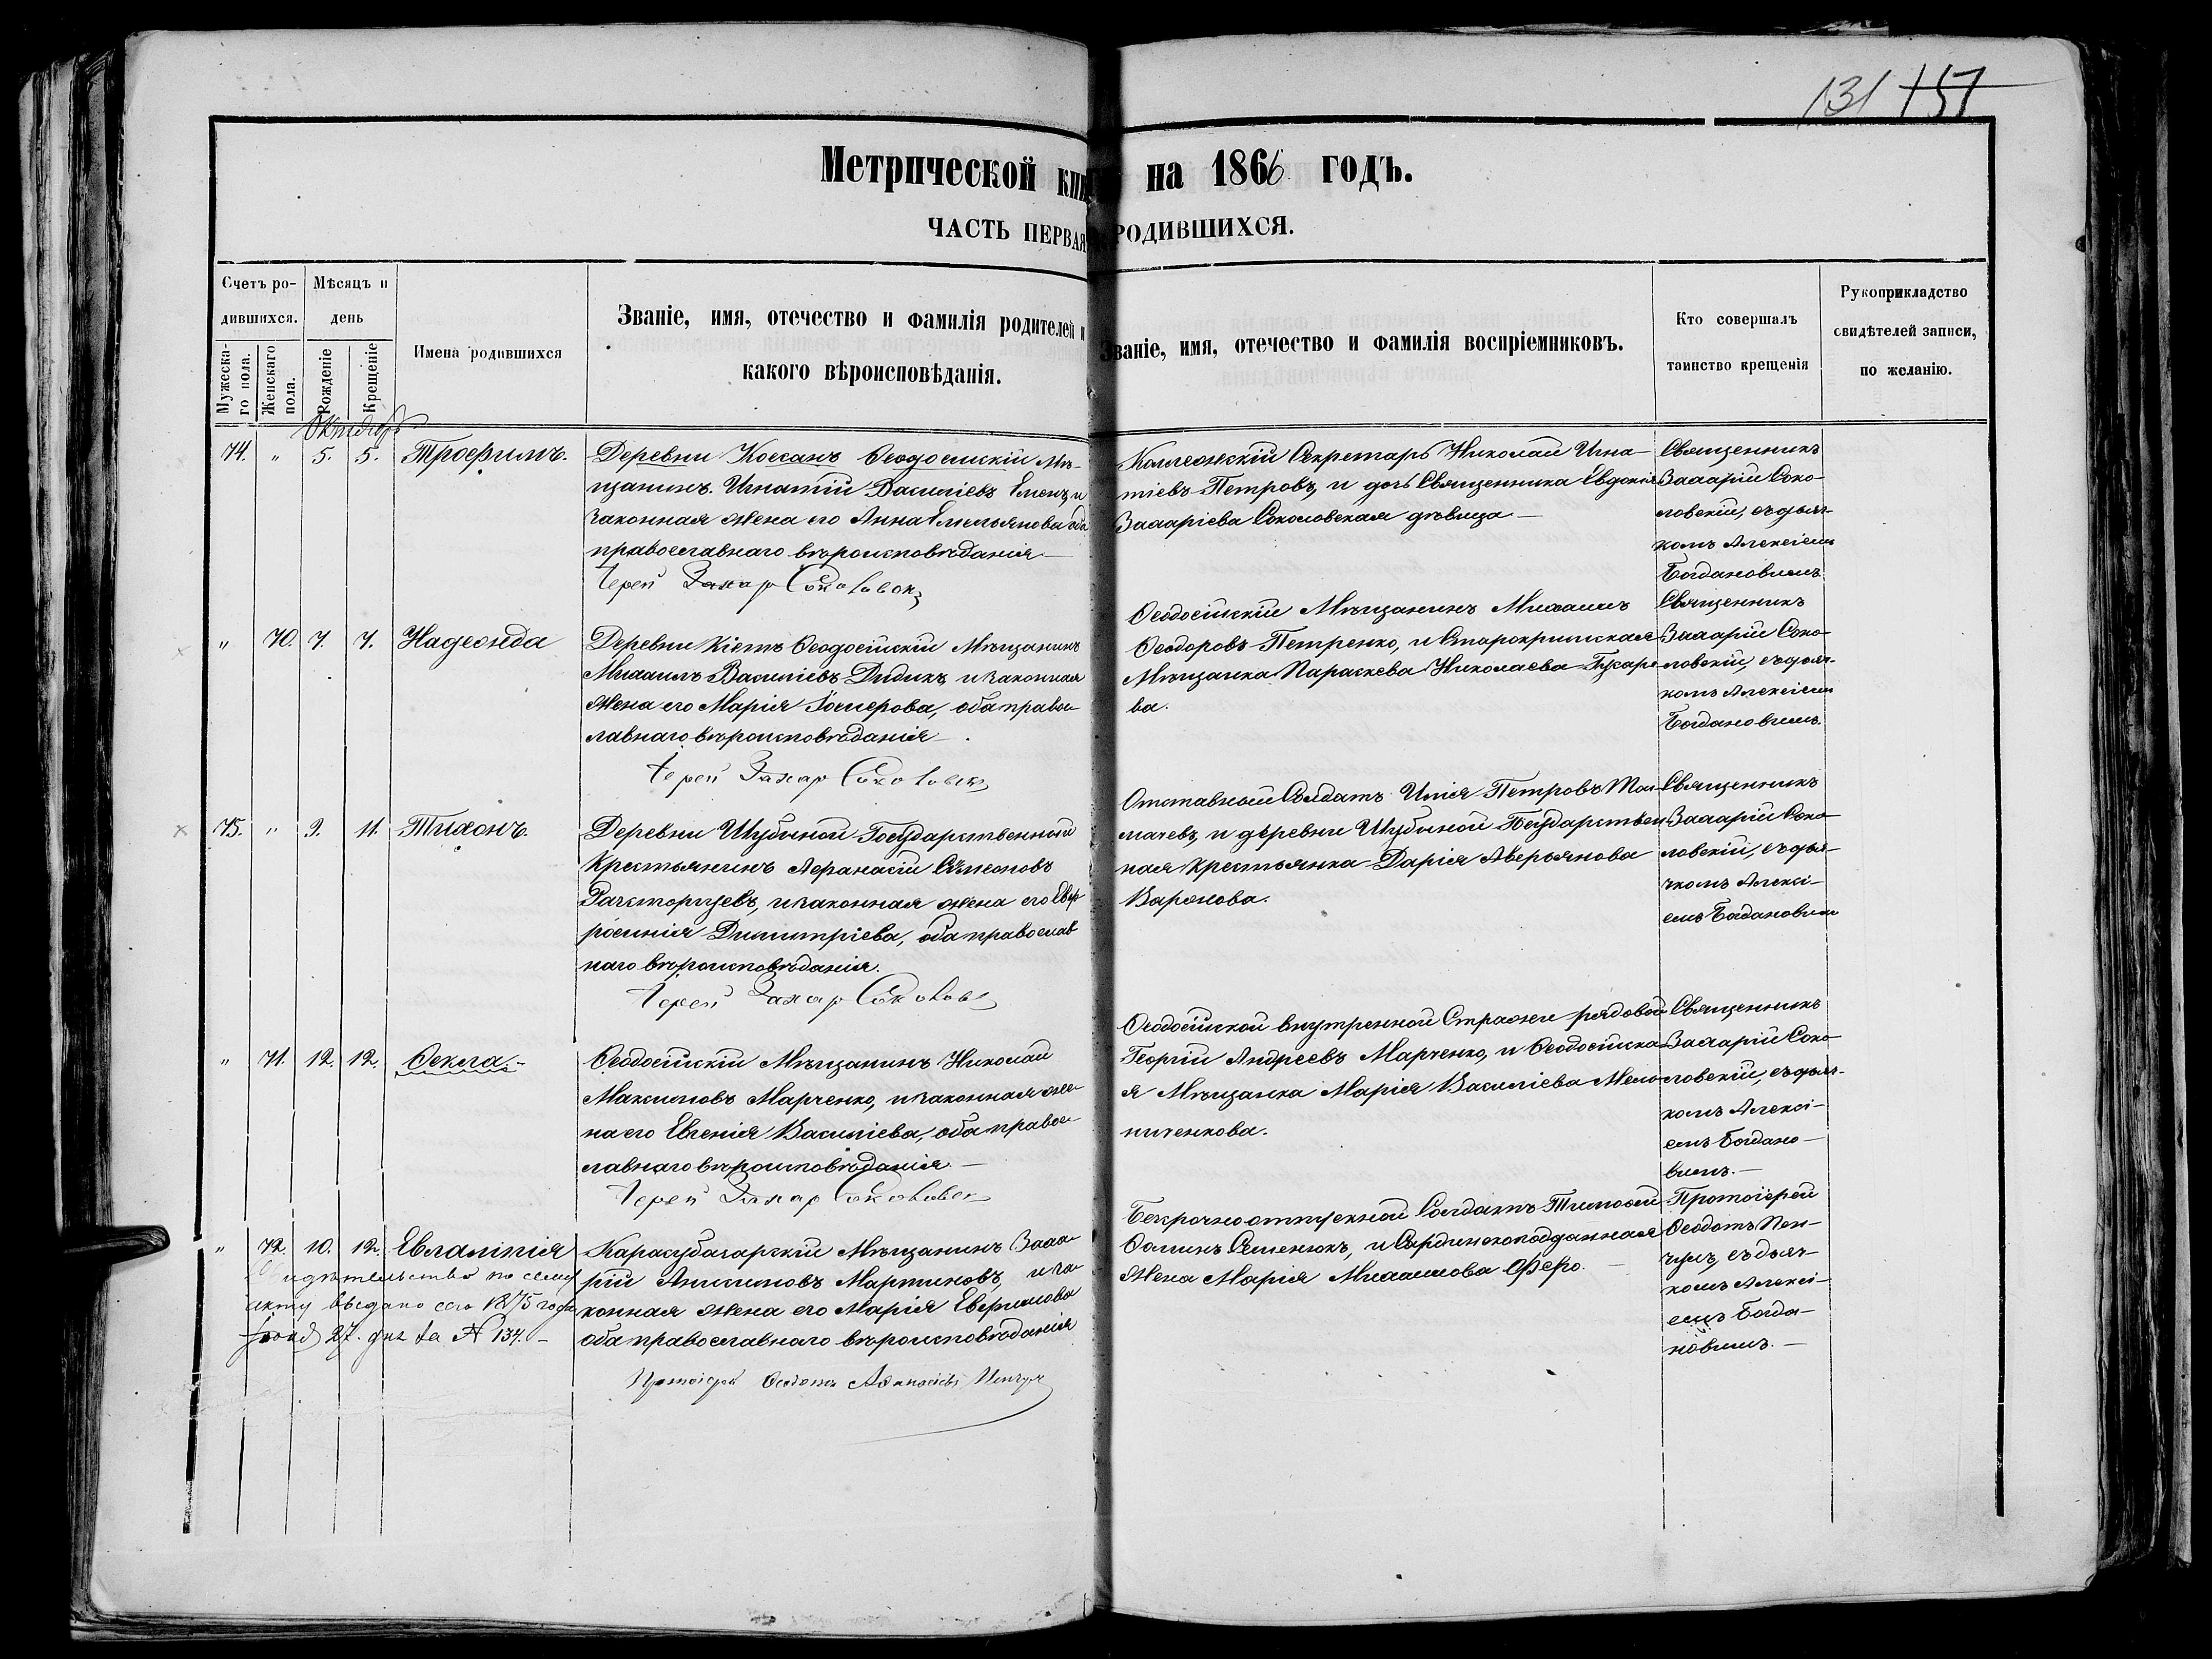 131 151
Метрической кни на 1866 годъ.
ЧАСТЬ ПЕРВАЯ РОДИВШИХСЯ.
Счетъ ро-
дившихся.
Мужеска-
го пола.
Женскаго
пола.
Мѣсяцъ и
день
Рожденіе
Крещеніе
Имена родившихся
Званіе, имя, отечество и фамилія родителей и
какого вѣроисповѣданія.
Званіе, имя, отечество и фамилія воспріемниковъ.
Кто совершалъ
таинство крещенія
Рукоприкладство
свидѣтелей записи,
по желанію.
Октябрь
74. " 5. 5. Трофимъ.
Деревни Коссанъ Ѳеодосійскій Мѣ-
щанинъ Игнатій Василіевъ и
законная жена его Анна Емельянова оба
православнаго вѣроисповѣданія
Іерей Захар Соколовск
Коллежскій Секретарь Николай Игна-
тіевъ Петровъ, и дочь Священника Евдокія
Захаріева Соколовская дѣвица
Священникъ
Захарій Соко-
ловскій, съ дьяч-
комъ Алексіемъ
Богдановымъ.
" 70. 7. 7. Надежда
Деревни Кіетъ Ѳеодосійскій Мѣщанинъ
Михаилъ Василіевъ Дидикъ, и законная
жена его Марія оба правос-
лавнаго вѣроисповѣданія.
Іерей Захар Соколовск
Ѳеодосійскій Мѣщанинъ Михаилъ
Ѳеодоровъ Петренко, и Старокрымская
Мѣщанка Параскева Николаева
ва.
Священникъ
Захарій Соко-
ловскій, съ дьяч-
комъ Алексіемъ
Богдановымъ.
75. " 9. 11. Тихонъ.
Деревни Шубиной Государственный
Крестьянинъ Афанасій Сѵмеоновъ
Расторгуевъ, и законная жена его Евф-
росинія Димитріева, оба православ
наго вѣроисповѣданія.
Іерей Захар Соколовс
Отставный Солдатъ Илія Петровъ Тол-
мачевъ, и деревни Шубиной Государствен-
ная Крестьянка Дарія Аверьянова
Варонова.
Священникъ
Захарій Соко-
ловскій, съ дья-
чкомъ Алексі-
емъ Богдановым
" 71. 12. 12. Ѳекла.
Ѳеодосійскій Мѣщанинъ Николай
Максимовъ Марченко, и законная же-
на его Евгенія Василіева, оба правос-
лавнаго вѣроисповѣданія.
Іерей Захар Соколовск
Ѳеодосійской внутренной Стражи рядовой
Георгій Андреевъ Марченко, и Ѳеодосійска-
я Мѣщанка Марія Василіева Мель-
ниченкова.
Священникъ
Захарій Соко-
ловскій, съ дьяч-
комъ Алексі-
емъ Богдано-
вымъ.
" 72. 10. 12. Евлампія
идѣтельство по сему
акту выдано сего 1875 года
27. дня за № 134.
Карасубазарскій Мѣщанинъ Заха-
рій Анисимовъ Мартиновъ, и за-
конная жена его Марія Евфимова
оба православнаго вѣроисповѣданія
Протоіерей Ѳеодотъ Аѳанасіевъ Пенчул
Безсрочноотпускной Солдатъ Тимоѳей
Ѳоминъ Семенюкъ, и Сардинскоподданная
жена Марія Михаилова Феро.
Протоіерей
Ѳеодотъ Пен-
чулъ, съ дьяч-
комъ Алексі-
емъ Богда-
новымъ.